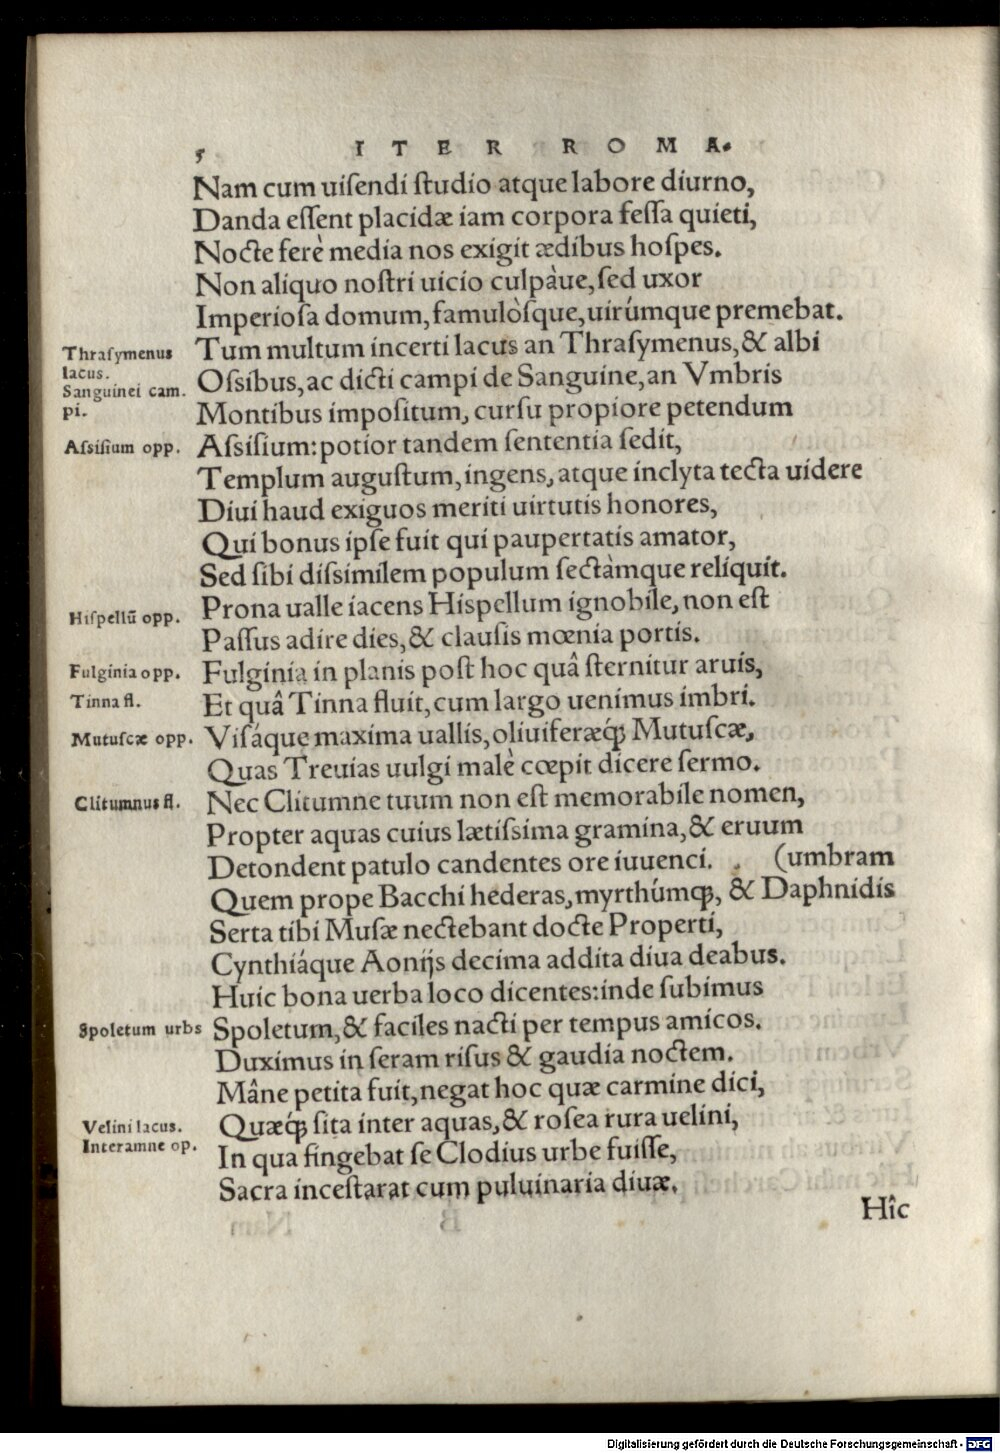 5 ITER ROMA.
Nam cum uiſendi ſtudio atque labore diurno,
Danda eſſent placidæ iam corpora feſſa quieti,
Nocte ferè media nos exigit ædibus hoſpes.
Non aliquo noſtri uicio culpàue, ſed uxor
Imperioſa domum, famulòſque, uirúmque premebat.
Thraſymenus
lacus.
Tum multum incerti lacus an Thraſymenus, & albi
Sanguinei cam.
pi.
Oſsibus, ac dicti campi de Sanguine, an Vmbris
Montibus impoſitum, curſu propiore petendum
Aſsiſium opp.
Aſsiſium: potior tandem ſententia ſedit,
Templum auguſtum, ingens, atque inclyta tecta uidere
Diui haud exiguos meriti uirtutis honores,
Qui bonus ipſe fuit qui paupertatis amator,
Sed ſibi diſsimilem populum ſectàmque reliquit.
Hiſpellũ opp.
Prona ualle iacens Hiſpellum ignobile, non eſt
Paſſus adire dies, & clauſis mœnia portis.
Fulginia opp.
Fulginia in planis poſt hoc quâ ſternitur aruis,
Tinna fl.
Et quâ Tinna fluit, cum largo uenimus imbri.
Mutuſcæ opp.
Viſáque maxima uallis, oliuiferæq́; Mutuſcæ,
Quas Treuias uulgi malè cœpit dicere ſermo.
Clitumnus fl.
Nec Clitumne tuum non eſt memorabile nomen,
Propter aquas cuius lætiſsima gramina, & eruum
Detondent patulo candentes ore iuuenci. (umbram
Quem prope Bacchi hederas, myrthúmq;, & Daphnidis
Serta tibi Muſæ nectebant docte Properti,
Cynthiáque Aonijs decima addita diua deabus.
Huic bona uerba loco dicentes: inde ſubimus
Spoletum urbs
Spoletum, & faciles nacti per tempus amicos.
Duximus in ſeram riſus & gaudia noctem.
Mâne petita fuit, negat hoc quæ carmine dici,
Velini lacus.
Interamne op.
Quæq́; ſita inter aquas, & roſea rura uelini,
In qua fingebat ſe Clodius urbe fuiſſe,
Sacra inceſtarat cum puluinaria diuæ.
Hîc
Digitalisierung gefördert durch die Deutsche Forschungsgemeinschaft - DFG